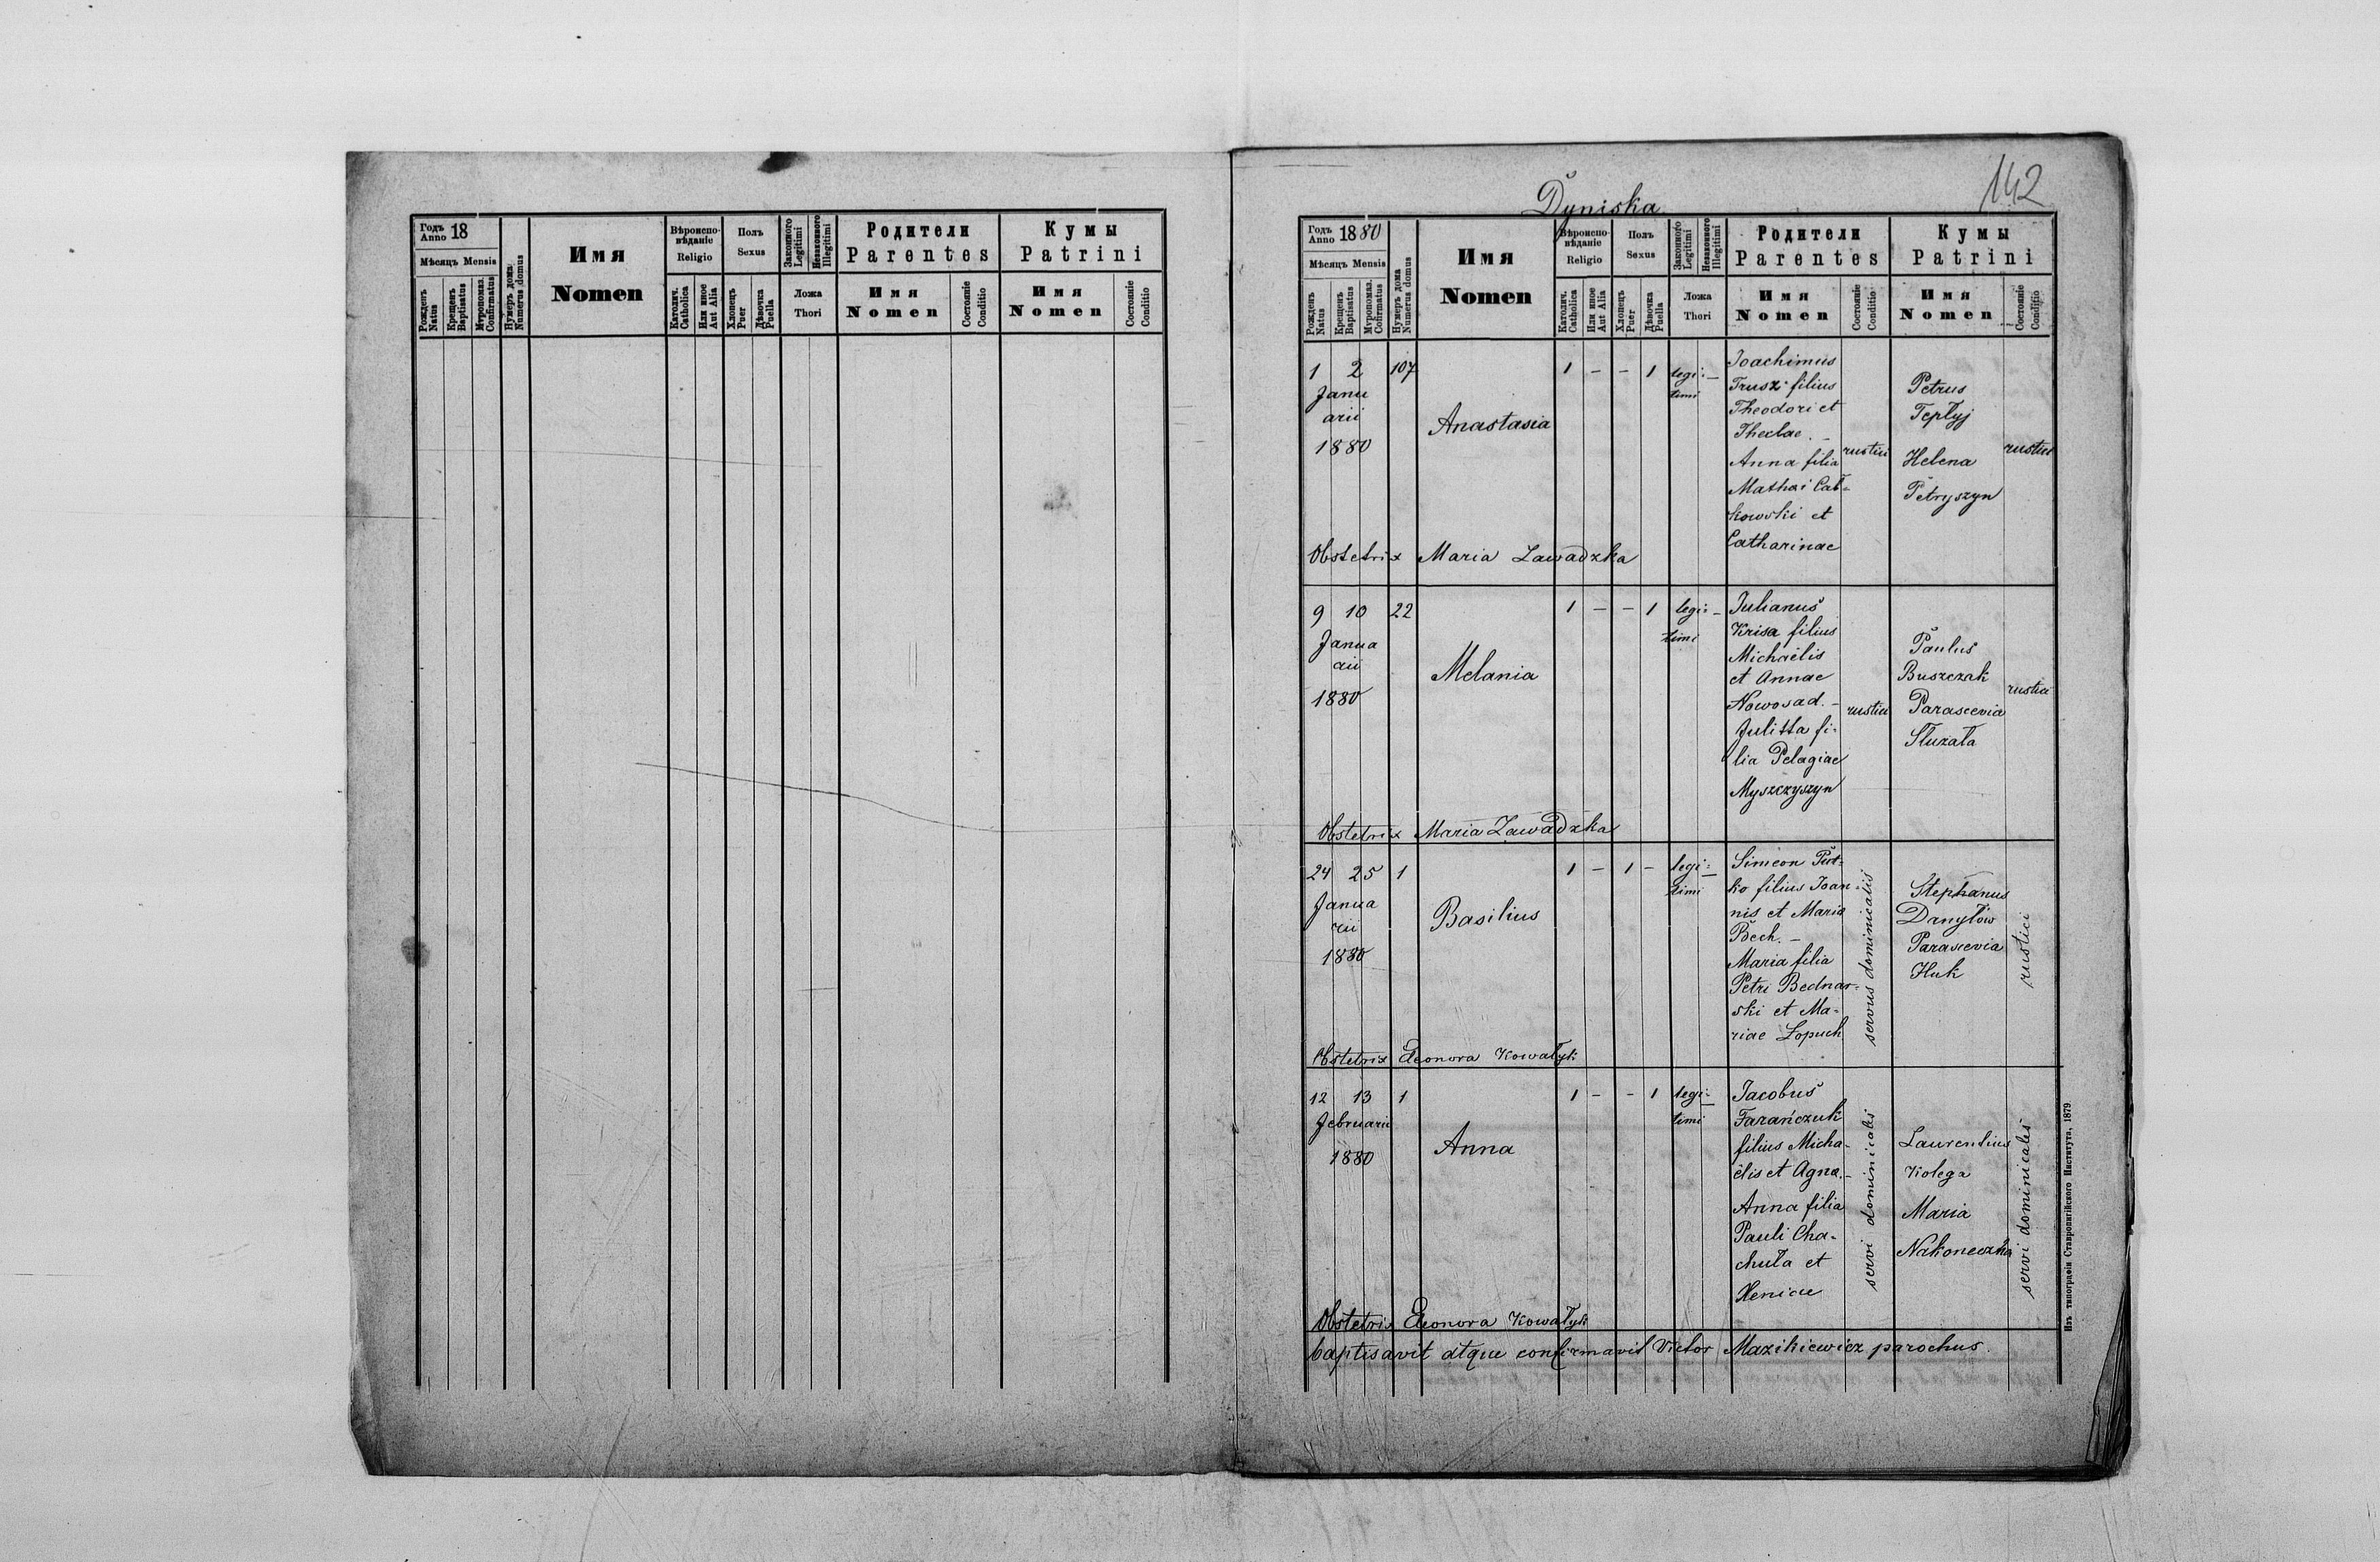 Годъ Anno 18
Мѣсяцъ Mensis
Рожденъ Natus
Крещенъ Baptisatus
Мѵропомаз. Confirmatus
Нумеръ дома Numerus domus
Имя
Nomen
Вѣроиспо-
вѣданіе
Religio
Католич. Catholica
Или иное Aut Alia
Полъ
Sexus
Хлопецъ Puer
Дѣвочка Puella
Законного Legitimi
Незаконного Illegitimi
Ложа
Thori
Родители
Parentes
Имя
Nomen
Состояніе Conditio
Кумы
Patrini
Имя
Nomen
Состояніе Conditio
142
Dyniska
Годъ Anno 1880
Мѣсяцъ Mensis
Рожденъ Natus
Крещенъ Baptisatus
Мѵропомаз. Confirmatus
Нумеръ дома Numerus domus
Имя
Nomen
Вѣроиспо-
вѣданіе
Religio
Католич. Catholica
Или иное Aut Alia
Полъ
Sexus
Хлопецъ Puer
Дѣвочка Puella
Законного Legitimi
Незаконного Illegitimi
Ложа
Thori
Родители
Parentes
Имя
Nomen
Состояніе Conditio
Кумы
Patrini
Имя
Nomen
Состояніе Conditio
1 2 107
Janu
arii
1880
Anastasia
1 - - 1
legi=
timi
Joachimus
Trusz filius
Theodori et
Theclae. -
Anna filia
Mathai Cał=
kowski et
Catharinae
rustici
Petrus
Tepłyj
Helena
Petryszyn
rustici
Obstetrix Maria Zawadzka
9 10 22
Janua
rii
1880
Melania
1 - - 1
legi= -
timi
Julianus
Krisa filius
Michaëlis
et Annae
Nowosad. -
Julitta fi=
lia Pelagiae
Myszczyszyn
rustici
Paulus
Buszczak
Parascevia
Służała
rustici
Obstetrix Maria Zawadzka
24 25 1
Janua
rii
1880
Basilius
1 - 1 -
legi=
timi
Simeon Put=
ko filius Joan=
nis et Maria
Bech. -
Maria filia
Petri Bednar=
ski et Ma=
riae Łopuch
servus dominicalis
Stephanus
Danyłów
Parascevia
Huk
rustici
Obstetrix Eleonora Kowałyk
12 13 1
Februarii
1880
Anna
1 - - 1
legi=
timi
Jacobus
Farańczuk
filius Micha=
ëlis et Agna. -
Anna filia
Pauli Cha=
chuła et
Xeniae
servi dominicalis
Laurentius
Kolega
Maria
Nakoneczka
servi dominicales
Obstetrix Eleonora Kowałyk
baptisavit atque confirmavit Victor Mazikiewicz parochus.
Изъ типографіи Ставропигійского Института, 1879